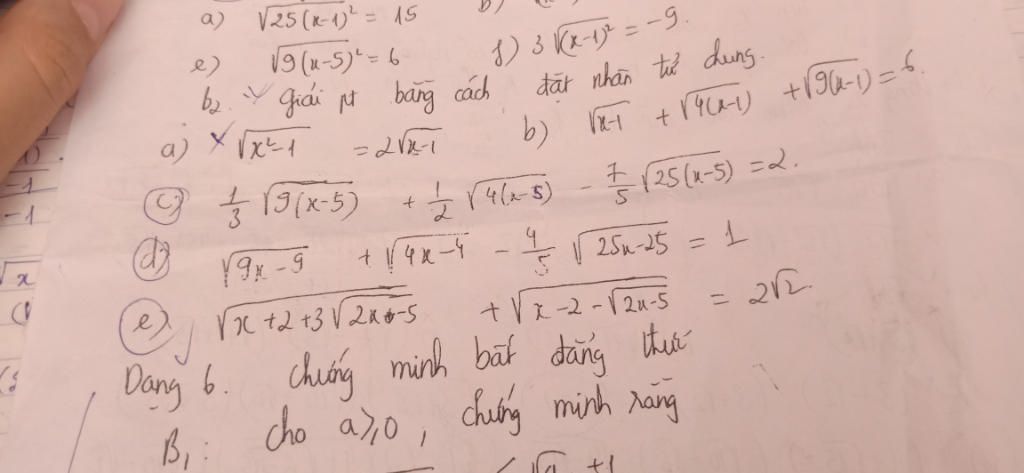 a) √25(x-1)² = 15 b)
e) √9(x-5)² = 6 f) 3√(x-1)² = -9.
b2. Giải pt bằng cách đặt nhân tử chung.
a) √x²-1 = 2√x-1 b) √x-1 + √4(x-1) + √9(x-1) = 6.
c) 1/3 √9(x-5) + 1/2 √4(x-5) - 7/5 √25(x-5) = 2.
d) √9x-9 + √4x-4 - 4/5 √25x-25 = 1
e) √x+2+3√2x-5 + √x-2-√2x-5 = 2√2.
Dạng 6. chứng minh bất đẳng thức
B1: cho a≥0, chứng minh rằng
+1